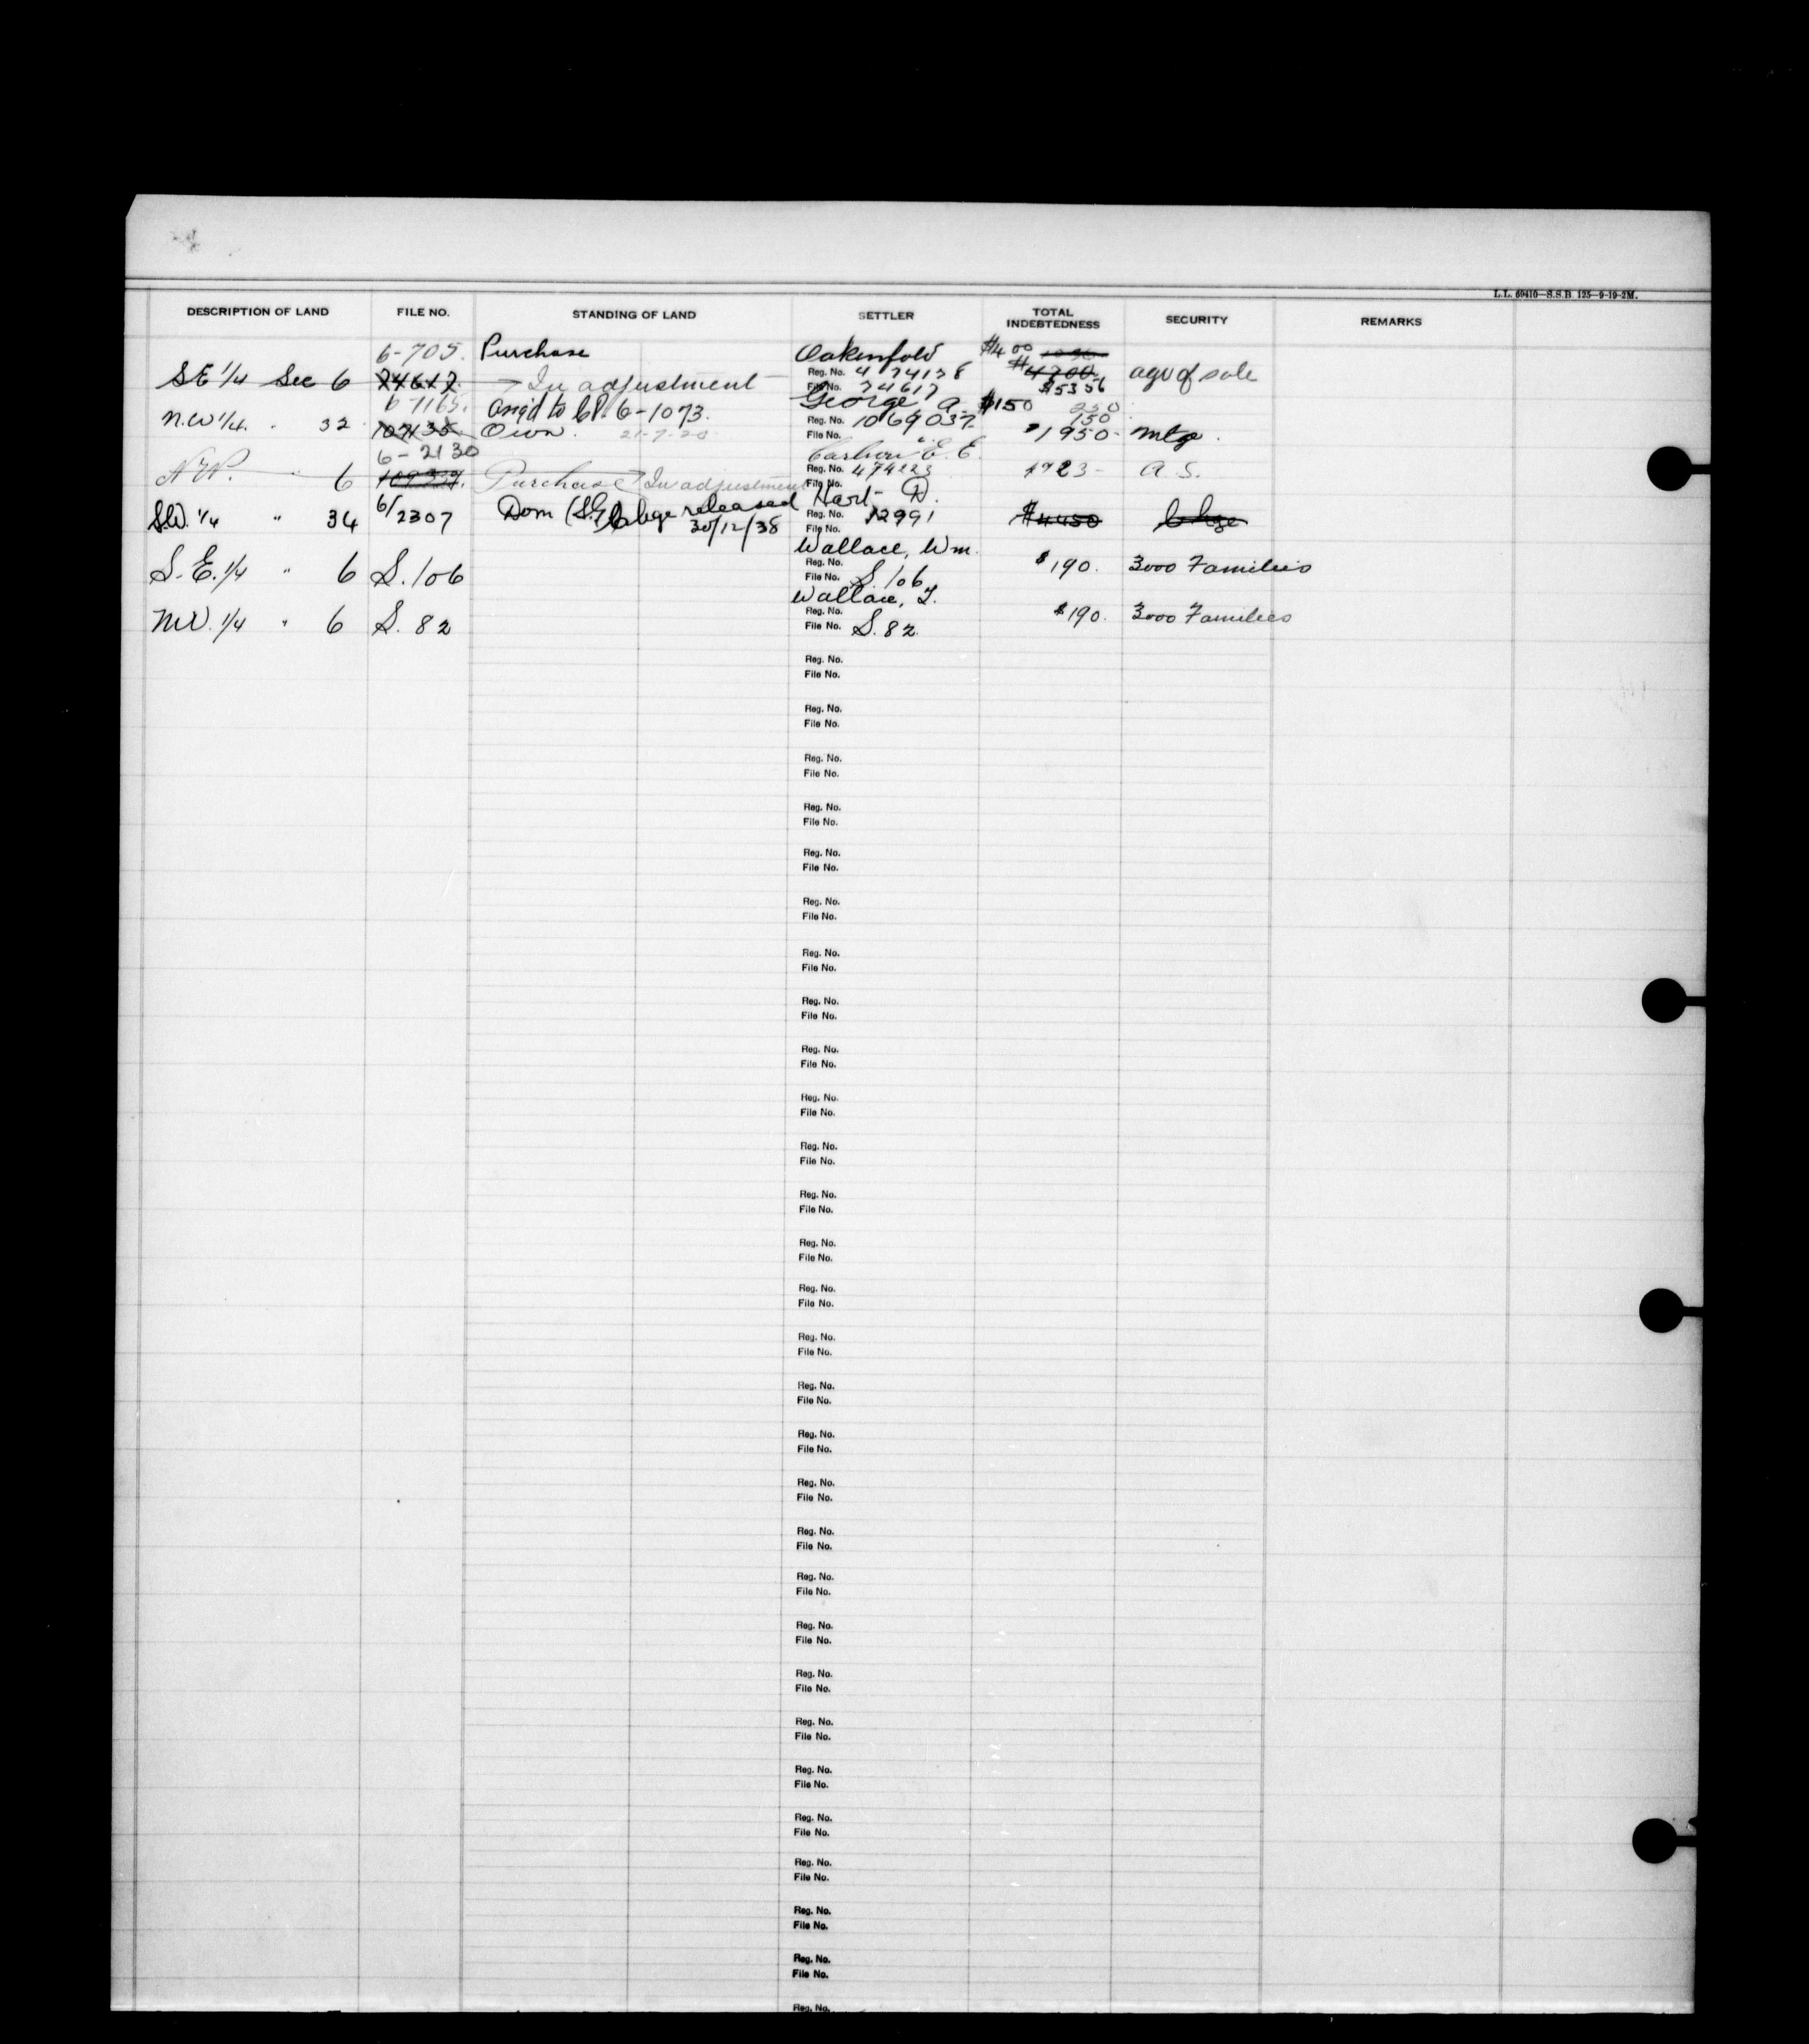 L.L. 60410—S.S.B. 125—9-19-2M.
DESCRIPTION OF LAND FILE NO. STANDING OF LAND SETTLER TOTAL INDEBTEDNESS SECURITY REMARKS
6-705. Purchase Oakenfold $400
SE 1/4 Sec 6 24617 In adjustment Reg. No. 474138 $4700 agr of sale
File No. 24617 $5356
6-1165. Ong'd to C.P. 6-1073. George A. $150 250
N.W 1/4. " 32 107135 Own. 21-7-20 Reg. No. 1069037 150
File No. $1950- Mtge.
6-2130 E. E.
N.W. " 6 Purchase In adjustment Reg. No. 474223 A.S.
File No.
Hart D.
SW. 1/4 " 34 6/2307 Dom (S.G) Chge released Reg. No. 12991 $4450 Chge
30/12/38 File No.
Wallace, Wm.
S.E. 1/4 " 6 S. 106 Reg. No. $190. 3000 Families
File No. S. 106
Wallace, T.
NW. 1/4 " 6 S. 82 Reg. No. $190. 3000 Families
File No. S. 82.
Reg. No.
File No.
Reg. No.
File No.
Reg. No.
File No.
Reg. No.
File No.
Reg. No.
File No.
Reg. No.
File No.
Reg. No.
File No.
Reg. No.
File No.
Reg. No.
File No.
Reg. No.
File No.
Reg. No.
File No.
Reg. No.
File No.
Reg. No.
File No.
Reg. No.
File No.
Reg. No.
File No.
Reg. No.
File No.
Reg. No.
File No.
Reg. No.
File No.
Reg. No.
File No.
Reg. No.
File No.
Reg. No.
File No.
Reg. No.
File No.
Reg. No.
File No.
Reg. No.
File No.
Reg. No.
File No.
Reg. No.
File No.
Reg. No.
File No.
Reg. No.
File No.
Reg. No.